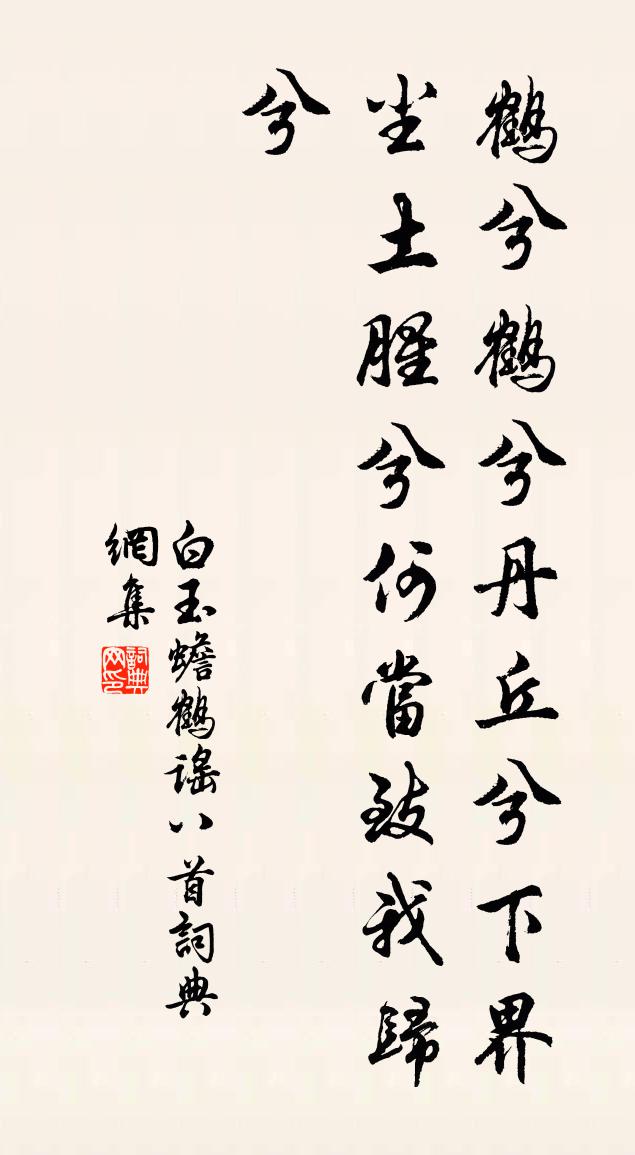 鶴兮鶴兮丹丘兮下界
尘土腥兮何當致我歸
兮
白玉蟾鶴謠八首詞典
網集
詞典
网印